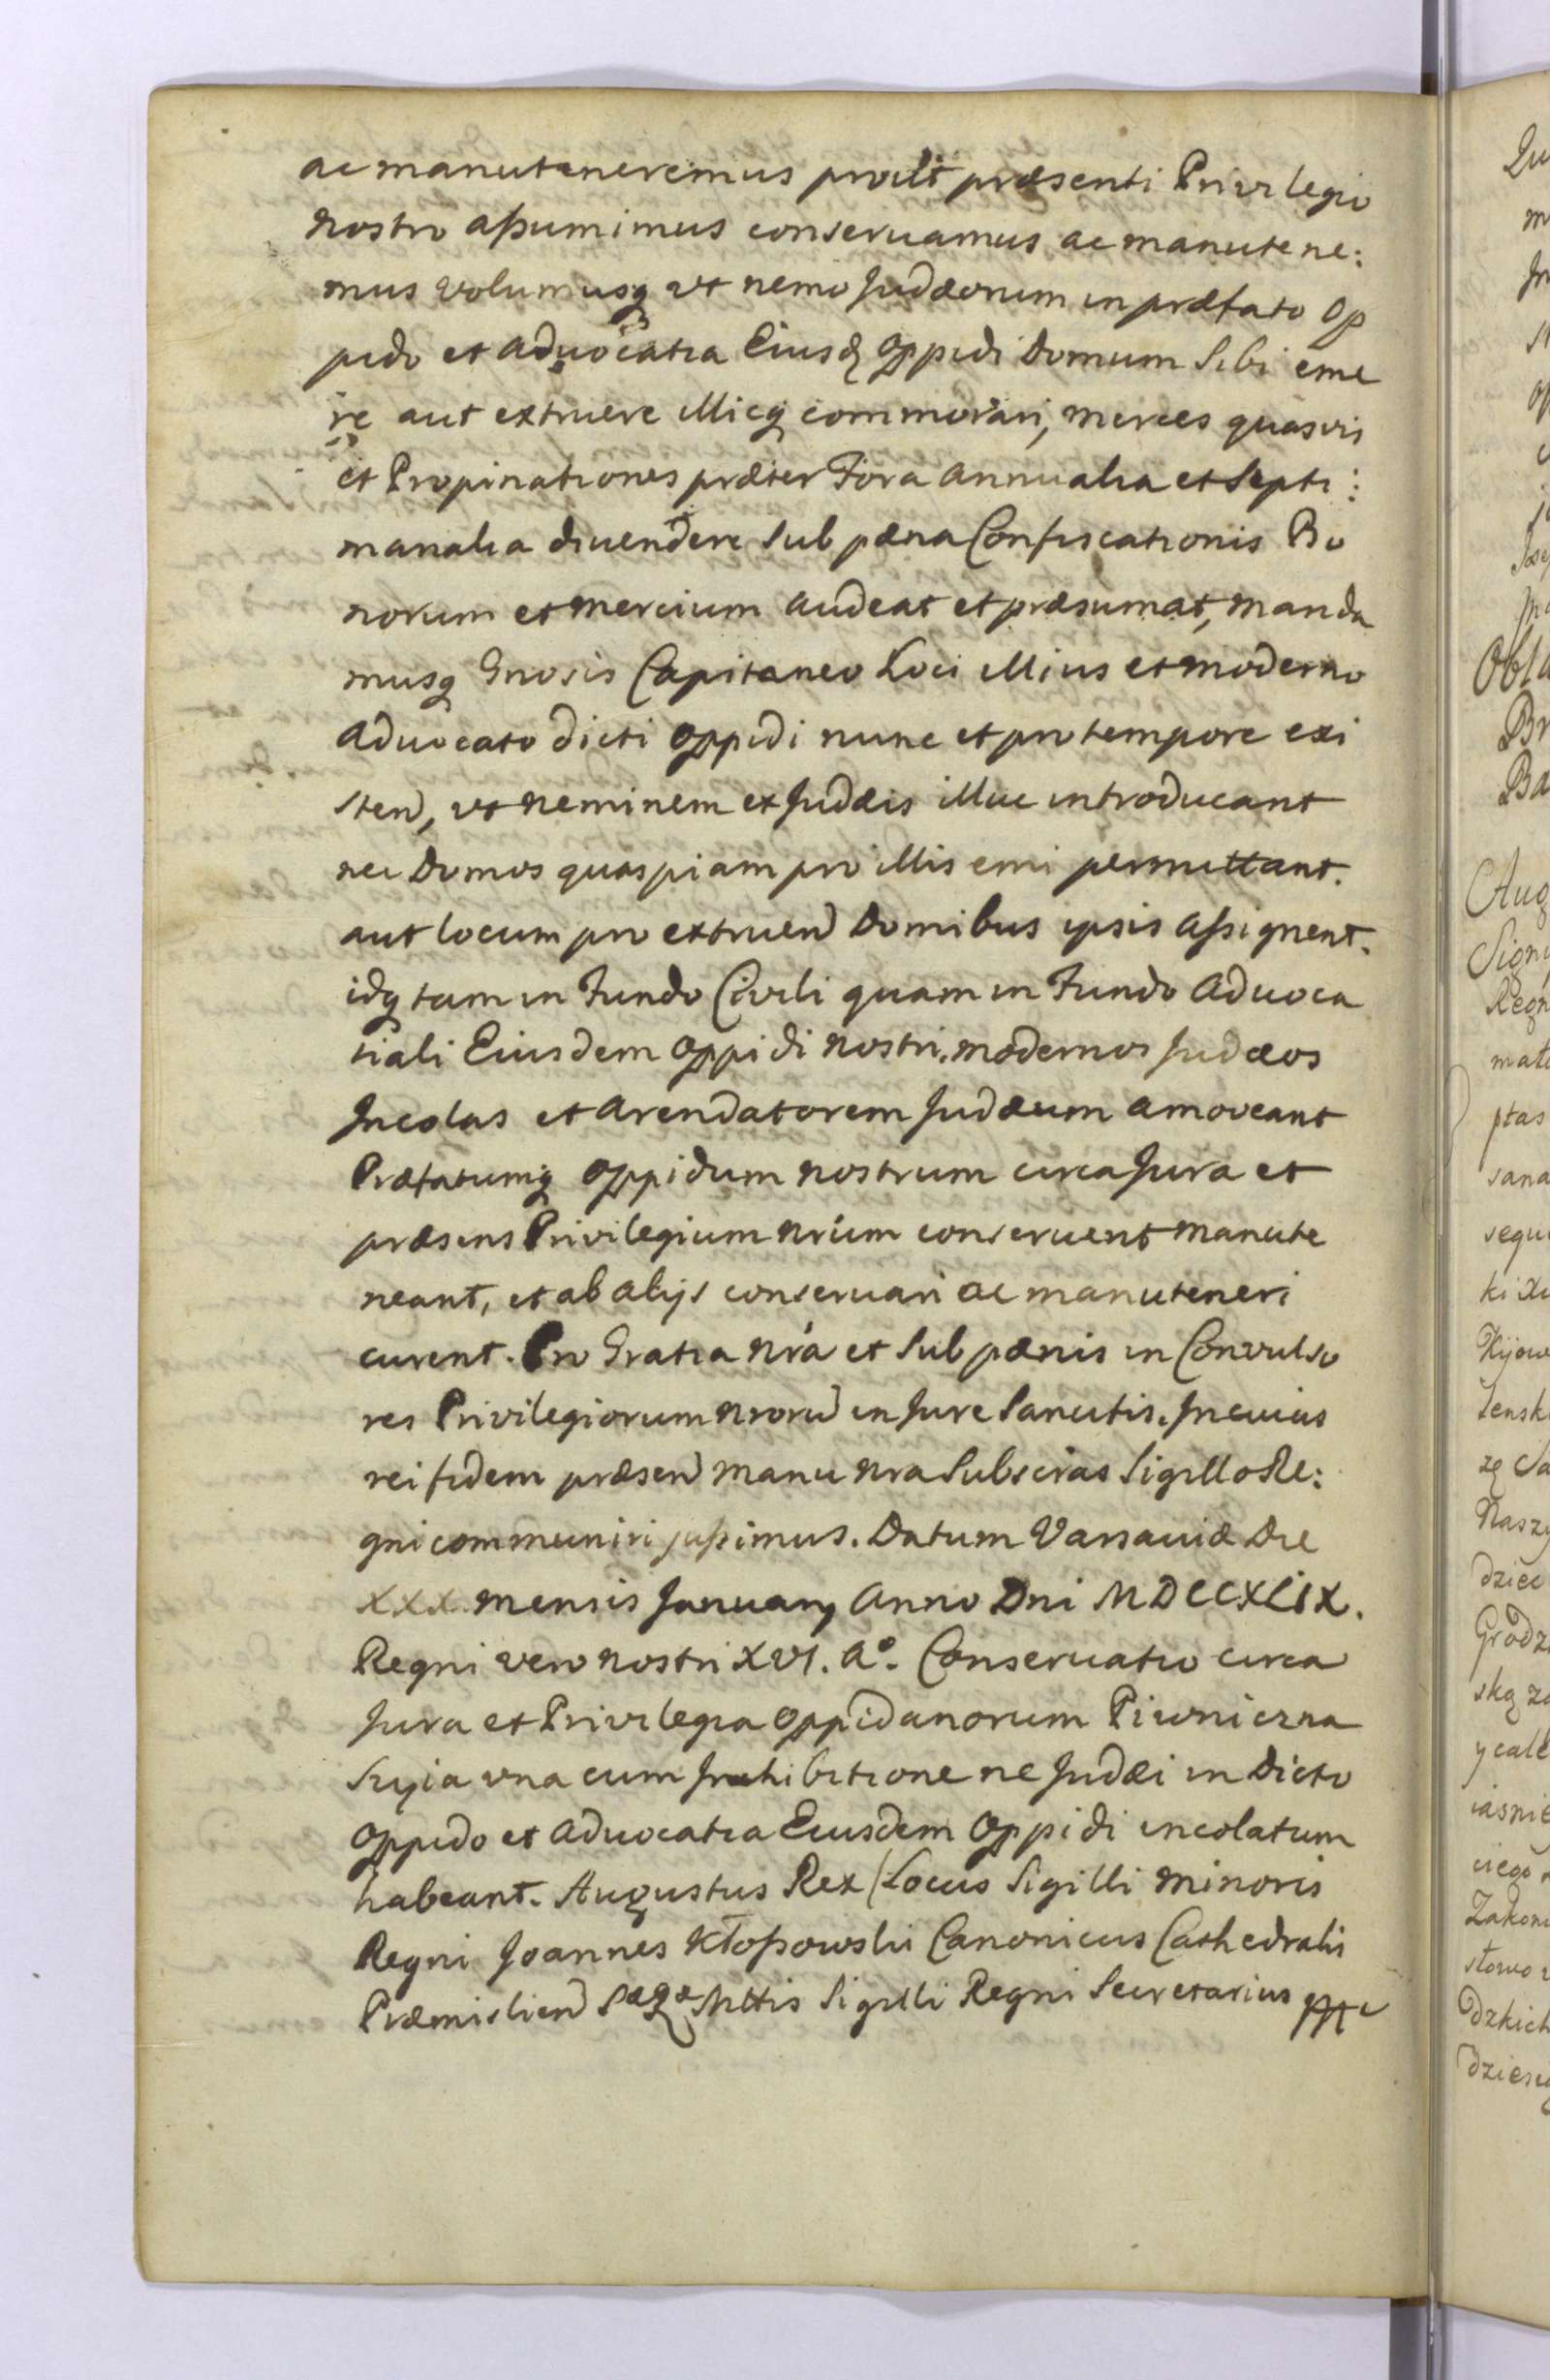 ac manuteneremus prout præsenti Privilegio
nostro aßumimus conservamus ac manutene:
mus volumusq vt nemo Judæorum in præfato Op
pido et advocatia Eiusd Oppidi Domum Sibi eme
re aut extruere illicq commorari, merces quasvis
et Propinationes præter Fora annualia et Septi:
manalia divendere sub pæna Confiscationis Bo
norum et mercium audeat et præsumat, manda
musq Gnosis Capitaneo Loci illius et moderno
advocato dicti Oppidi nunc et pro tempore exi
sten, vt neminem ex Judæis illuc introducant
nec Domos quaspiam pro illis emi permittant.
aut locum pro extruen Domibus ipsis aßignent.
idq tam in Fundo Civili quam in Fundo advoca
tiali Eiusdem Oppidi nostri. modernos Judæos
Jncolas et arendatorem Judæum amoveant
Præfatumq Oppidum nostrum circa Jura et
præsens Privilegium nrum conservent manute
neant, et ab alijs conservari ac manuteneri
curent. Pro Gratia nra et sub pænis in Convulso
res Privilegiorum nroru in Jure Sancitis. Jn cuius
rei fidem præsen manu nra Subscras Sigillo Re:
gni communiri jußimus. Datum Varsaviæ Die
XXX. mensis January anno Dni MDCCXLIX.
Regni vero nostri XVI. Ao. Conservatio circa
Jura et Privilegia Oppidanorum Piwniczna
Szyia vna cum Jnhibitione ne Judæi in Dicto
Oppido et advocatia Eiusdem Oppidi incolatum
habeant. Augustus Rex (Locus Sigilli minoris
Regni Joannes Kłoßowski Canonicus Cathedralis
Præmislien Sæ Ræ Mttis Sigilli Regni Secretarius
Obla
Br
Ba
Aug
mato
ptas
sana
sequ
Kijow
lensk
Naszy
dziec
y cale
iasnie
Zakon
słowo
dzkich